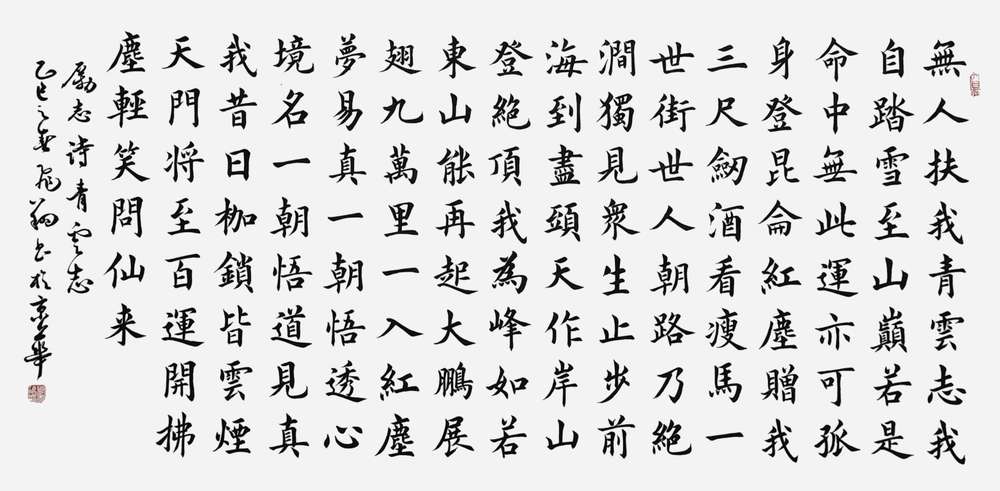 無人扶我青雲志我
自踏雪至山巔若是
命中無此運亦可孤
身登昆侖紅塵贈我
三尺劍酒看瘦馬一
世街世人朝路乃絕
澗獨見衆生止步前
海到盡頭天作岸山
登絕頂我為峰如若
東山能再起大鵬展
翅九萬里一入紅塵
夢易真一朝悟透心
境名一朝悟道見真
我昔日枷鎖皆雲煙
天門将至百運開拂
塵輕笑問仙来
勵志诗青雲志
乙巳之春飛翔书於京華